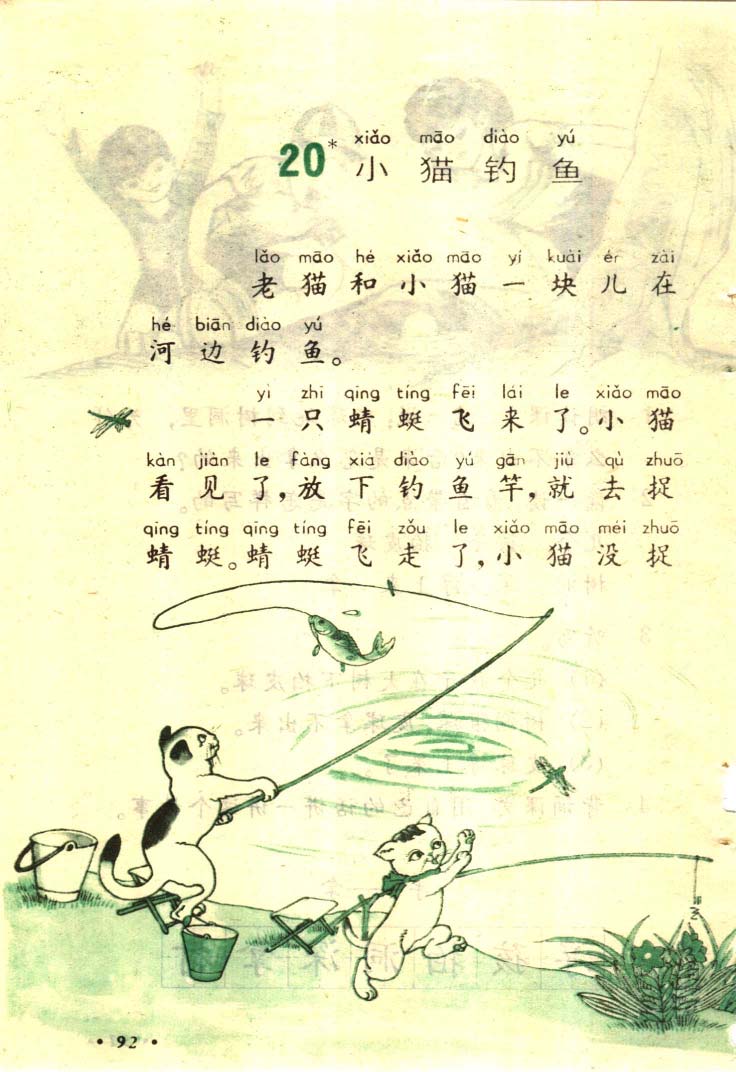 xiǎo māo diào yú
20* 小猫钓鱼
lǎo māo hé xiǎo māo yí kuài ér zài
老猫和小猫一块儿在
hé biān diào yú
河边钓鱼。
yì zhī qīng tíng fēi lái le xiǎo māo
一只蜻蜓飞来了。小猫
kàn jiàn le fàng xià diào yú gān jiù qù zhuō
看见了,放下钓鱼竿,就去捉
qīng tíng qīng tíng fēi zǒu le xiǎo māo méi zhuō
蜻蜓。蜻蜓飞走了,小猫没捉
• 92 •